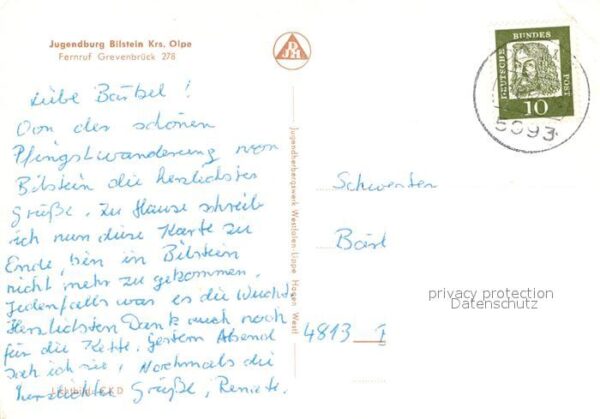 Jugendburg Bilstein Krs. Olpe
Fernruf Grevenbrück 278
DJH
DEUTSCHE BUNDESPOST
10
5093
Liebe Bärbel!
Von der schönen
Pfingstwanderung von
Bilstein die herzlichsten
Grüße. Zu Hause schreib
ich nun diese Karte zu
Ende, bin in Bilstein
nicht mehr zu gekommen.
Jedenfalls war es die Wucht.
Herzlichsten Dank auch noch
für die Kette. Gestern Abend
sah ich sie, Nochmals die
herzlichsten Grüße, Renate.
Jugendherbergswerk Westfalen-Lippe Hagen Westf
Schwester
4813 I
privacy protection
Datenschutz